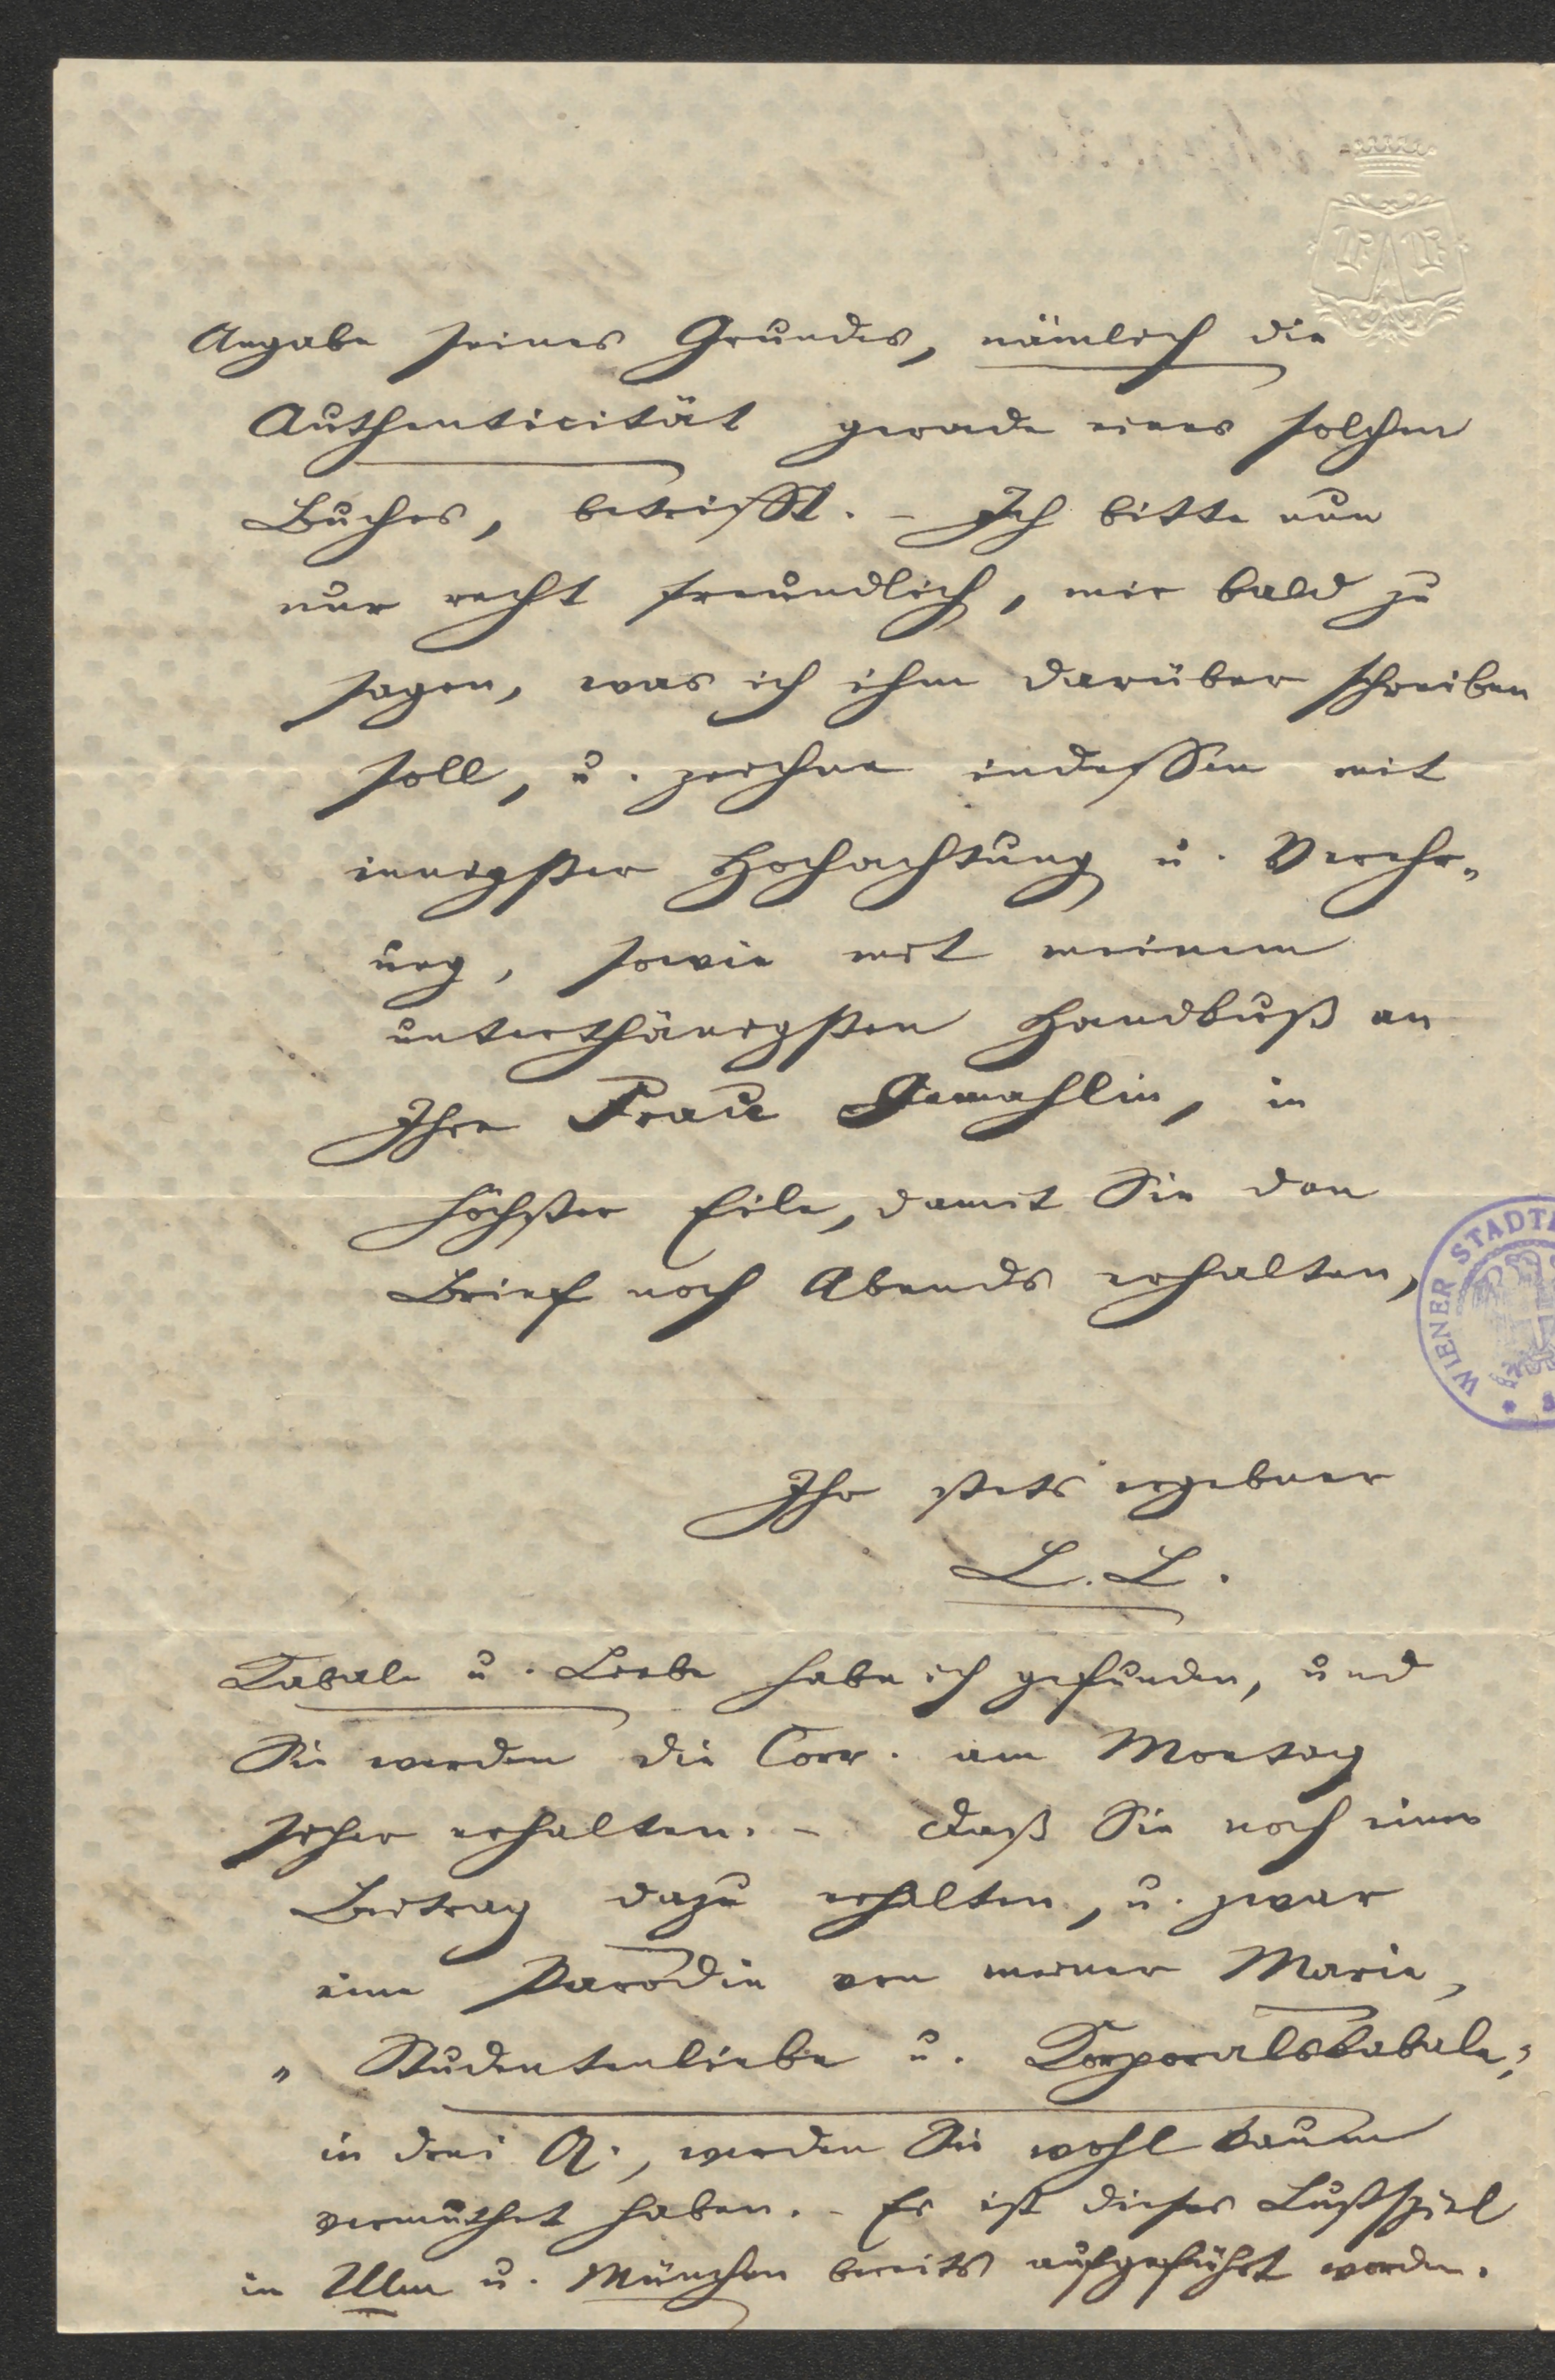 Angabe seines Grundes, nämlich die
Authenticität gerade eines solchen
Buches, betrifft. – Ich bitte nun
nur recht freundlich, mir bald zu
sagen, was ich ihm darüber schreiben
soll, u. zeichne indessen mit
innigster Hochachtung u. Verehr„
ung, sowie mit meinem
unterthänigsten Handkuß an
Ihre Frau Gemahlin, in
höchster Eile, damit Sie den
Brief noch Abends erhalten,
WIENER STADT
Ihr stets ergebner
L. L.
Kabale u. Liebe habe ich gefunden, und
Sie werden die Corr. am Montag
sicher erhalten. – Daß Sie noch einen
Beitrag dazu erhalten, u. zwar
eine Parodie von meiner Marie,
„Studentenliebe u. Korporalskabale,"
in drei A., werden Sie wohl kaum
vermuthet haben. – Es ist dieses Lustspiel
in Ulm u. München bereits aufgeführt worden.